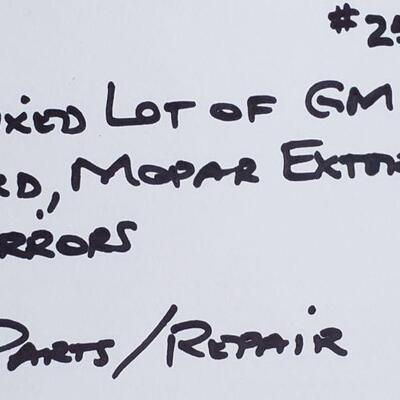 #25
ixed Lot of GM
rd, Mopar Exter
irrors
Parts/Repair